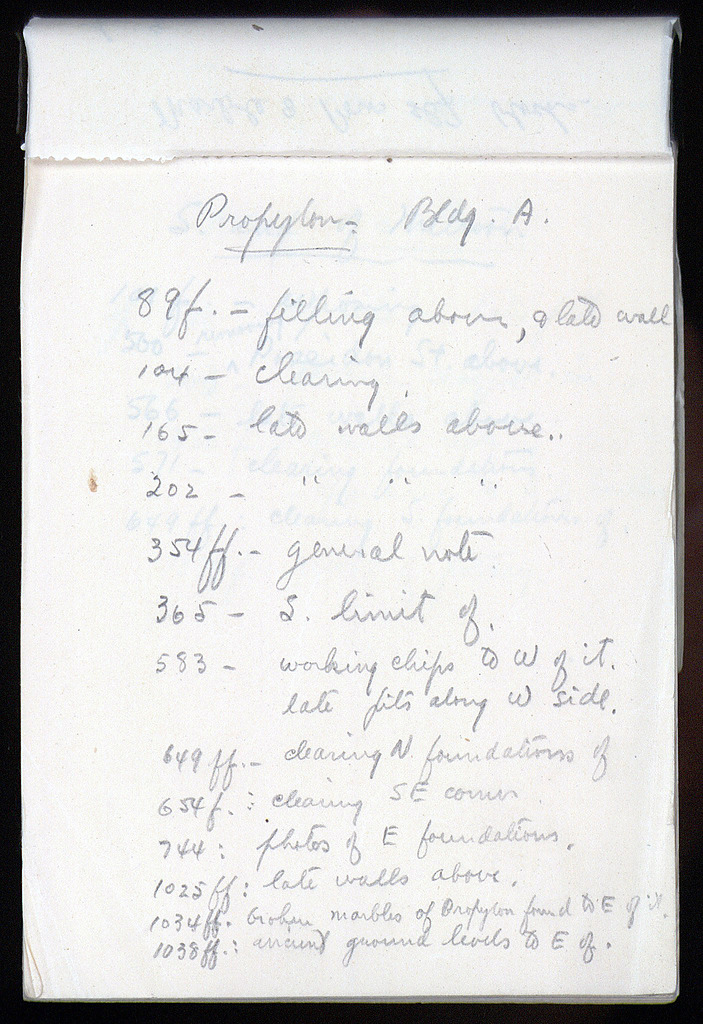 Propylon - Bldg. A.
89f. - filling above, & late wall
104 - clearing.
165 - late walls above..
202 - " " "
354ff. - general note.
365 - S. limit of.
583 - working chips to W of it.
late pits along W side.
649ff. - clearing N foundations of
654f. : clearing SE corner
744 : photos of E foundations.
1025ff : late walls above.
1034ff. broken marbles of Propylon found to E of it.
1038ff. : ancient ground levels to E of.